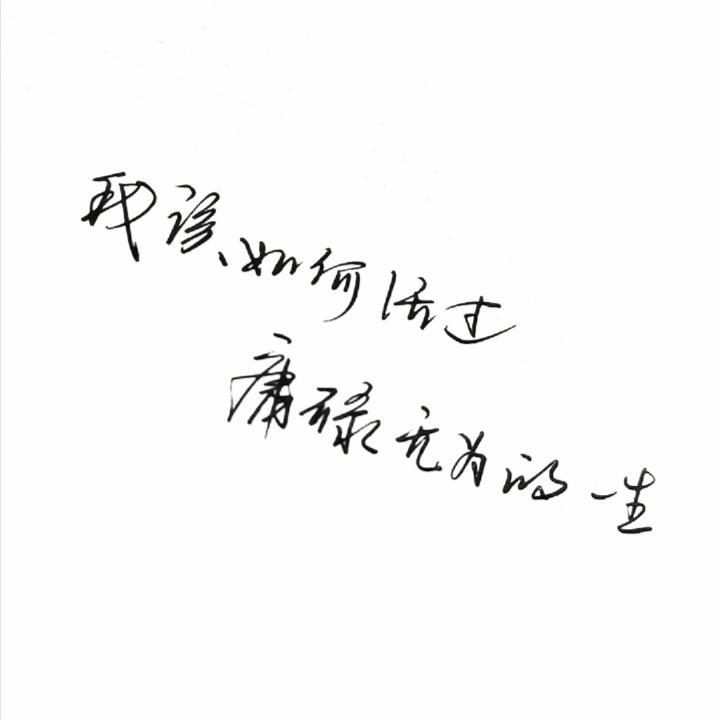 我该如何活过
庸碌无为的一生